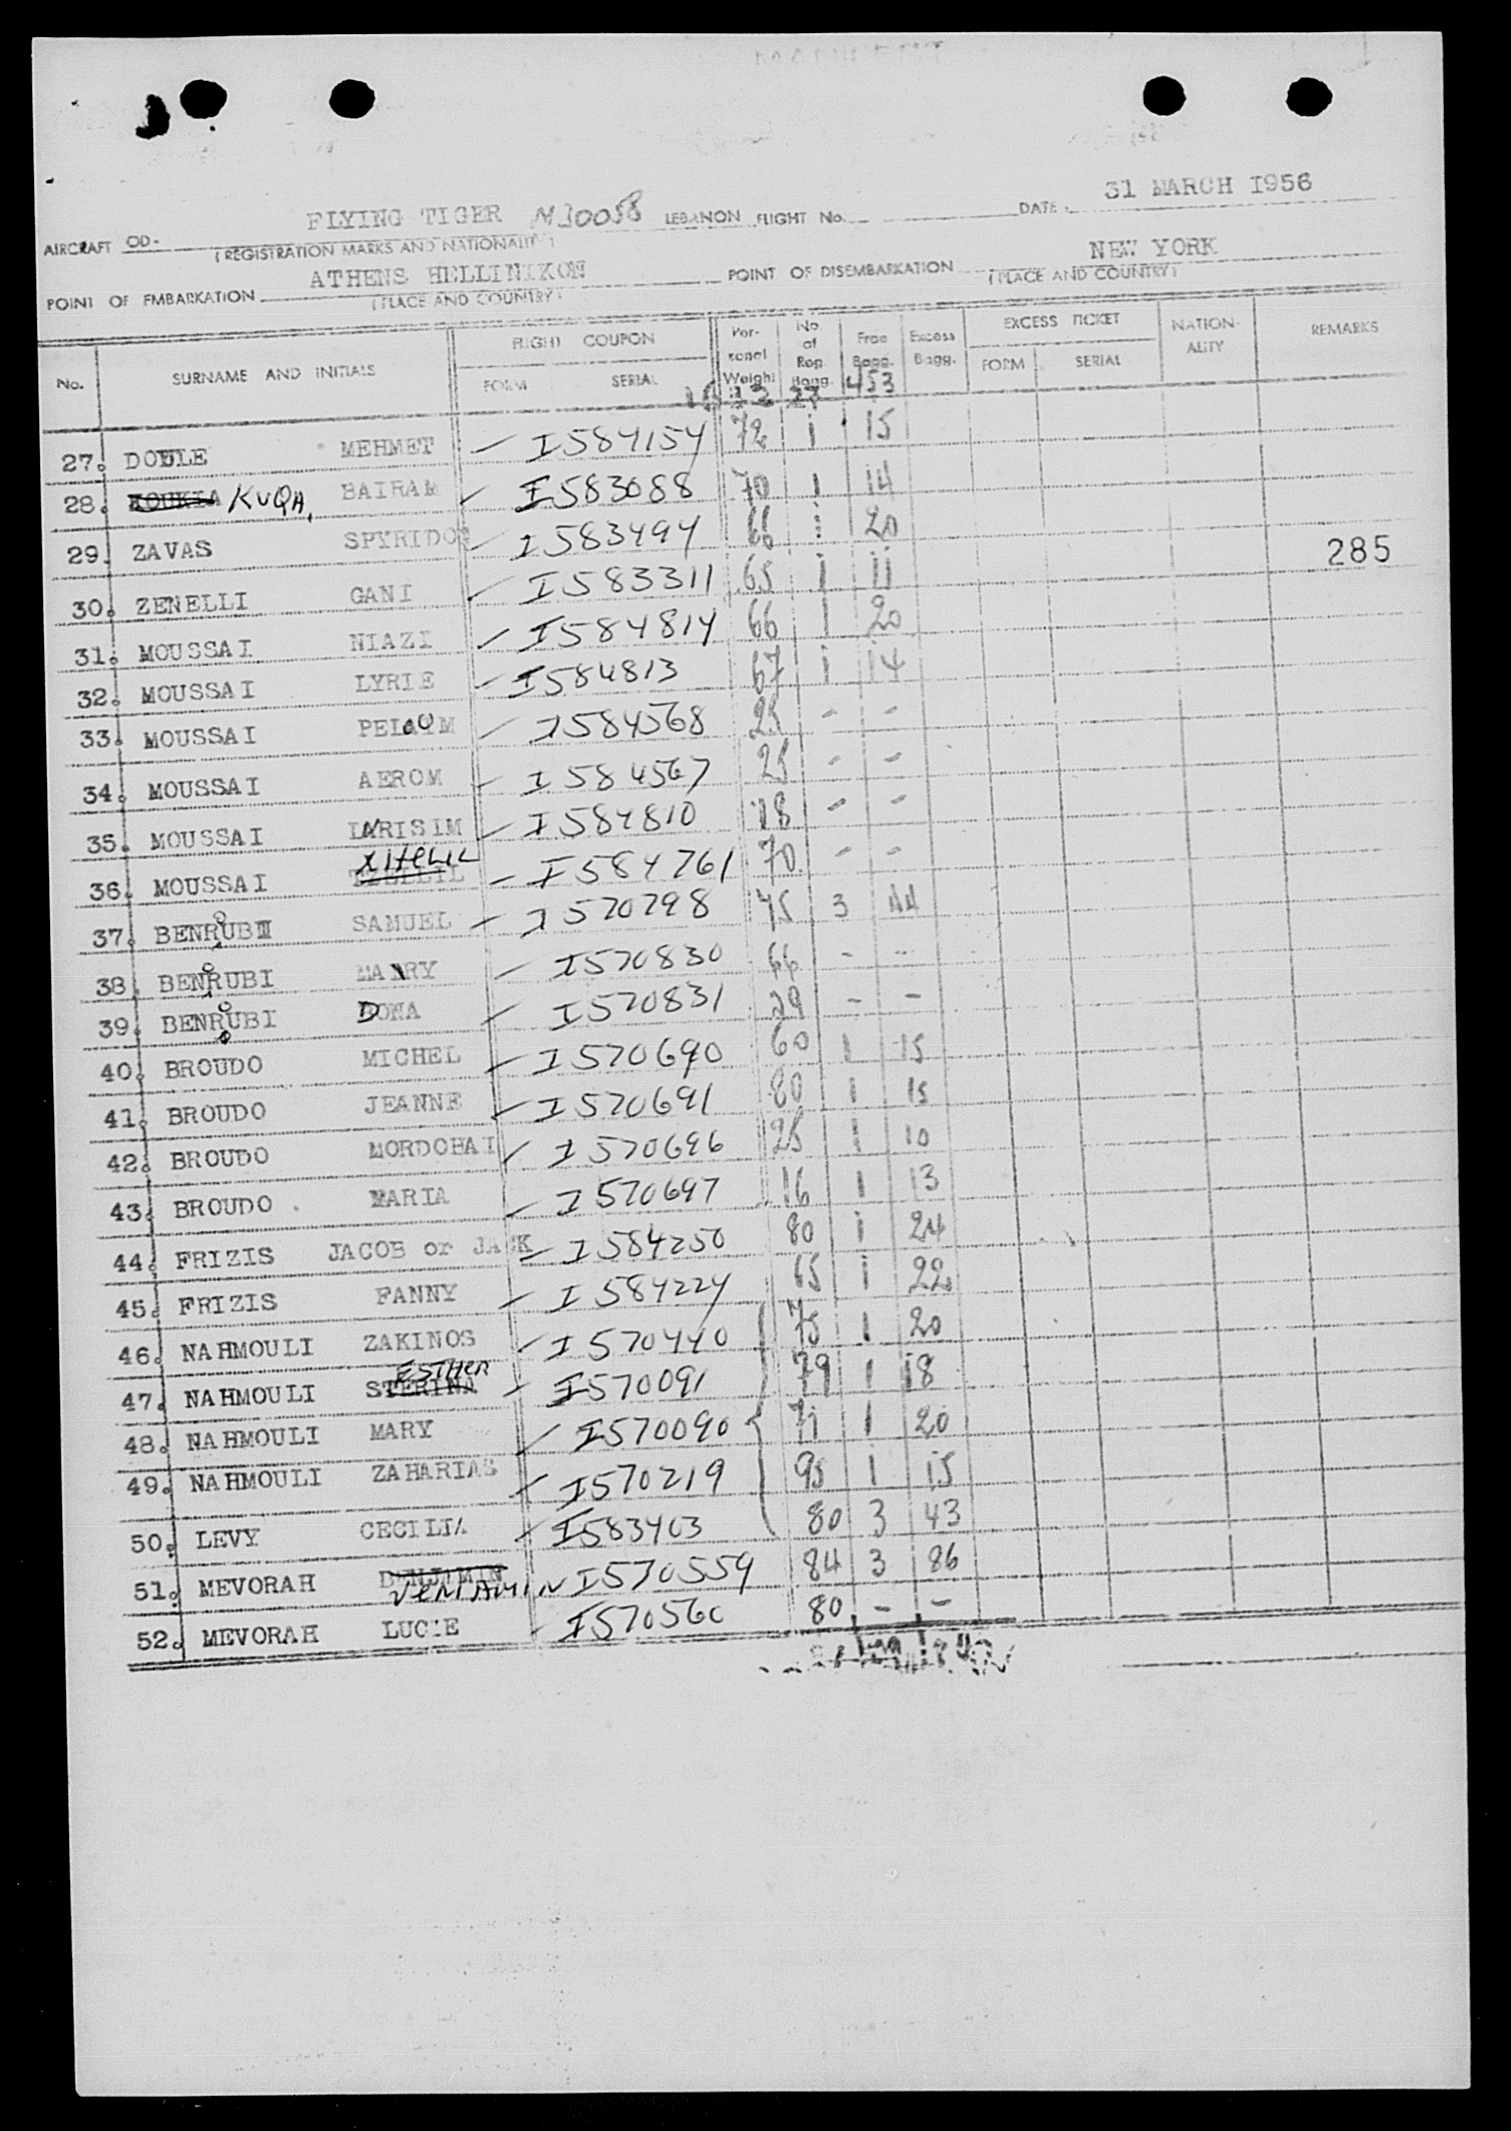 31 MARCH 1956
AIRCRAFT OD- FLYING TIGER N10058 LEBANON FLIGHT No. DATE
(REGISTRATION MARKS AND NATIONALITY)
POINT OF EMBARKATION ATHENS HELLINIKON POINT OF DISEMBARKATION NEW YORK
(PLACE AND COUNTRY) (PLACE AND COUNTRY)
No. SURNAME AND INITIALS FLIGHT COUPON FORM SERIAL Personal Weight No. of Reg. Bagg. Free Bagg. Excess Bagg. EXCESS TICKET FORM SERIAL NATIONALITY REMARKS
453
27. DOULE MEHMET I584154 72 1 15
28. KOUKIA KUQA, BAIRAM I583088 70 1 14
29. ZAVAS SPYRIDOS I583494 66 1 20
285
30. ZENELLI GANI I583311 65 1 11
31. MOUSSAI NIAZI I584814 66 1 20
32. MOUSSAI LYRIE I584813 67 1 14
33. MOUSSAI I584568 25 - -
34. MOUSSAI AEROM I584567 25 - -
35. MOUSSAI I584810 18 - -
36. MOUSSAI I584761 70 - -
37. BENRUBI SAMUEL I570798 75 3 44
38. BENRUBI MARRY I570830 66 - -
39. BENRUBI DONA I570831 29 - -
40. BROUDO MICHEL I570690 60 1 15
41. BROUDO JEANNE I570691 80 1 15
42. BROUDO MORDOHAI I570696 25 1 10
43. BROUDO MARIA I570697 16 1 13
44. FRIZIS JACOB or JACK I584250 80 1 24
45. FRIZIS FANNY I584224 65 1 22
46. NAHMOULI ZAKINOS I570440 75 1 20
ESTHER
47. NAHMOULI STERINA I570091 79 1 18
48. NAHMOULI MARY I570090 71 1 20
49. NAHMOULI ZAHARIAS I570219 95 1 15
50. LEVY CECILIA I583403 80 3 43
51. MEVORAH BENJAMIN I570559 84 3 86
VENIAMIN
52. MEVORAH LUCIE I570560 80 - -